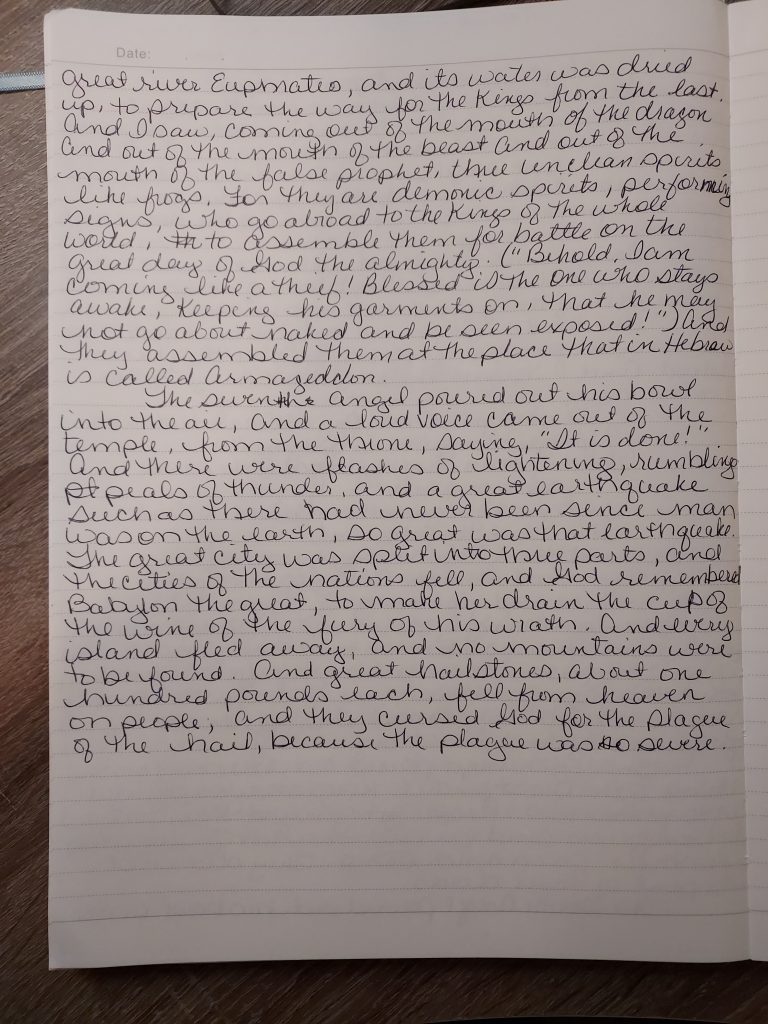 Date:
great river Euphrates, and its water was dried
up, to prepare the way for the Kings from the east.
And I saw, coming out of the mouth of the dragon
and out of the mouth of the beast and out of the
mouth of the false prophet, three unclean spirits
like frogs. For they are demonic spirits, performing
signs, who go abroad to the Kings of the whole
world, to assemble them for battle on the
great day of God the almighty. ("Behold, I am
coming like a thief! Blessed is the one who stays
awake, keeping his garments on, that he may
not go about naked and be seen exposed!") And
they assembled them at the place that in Hebrew
is called Armageddon.
The seventh angel poured out his bowl
into the air, and a loud voice came out of the
temple, from the throne, saying, "It is done!"
And there were flashes of lightening, rumbling
peals of thunder, and a great earthquake
such as there had never been since man
was on the earth, so great was that earthquake.
The great city was split into three parts, and
the cities of the nations fell, and God remembered
Babylon the great, to make her drain the cup of
the wine of the fury of his wrath. And every
island fled away, and no mountains were
to be found. And great hailstones, about one
hundred pounds each, fell from heaven
on people; and they cursed God for the plague
of the hail, because the plague was so severe.